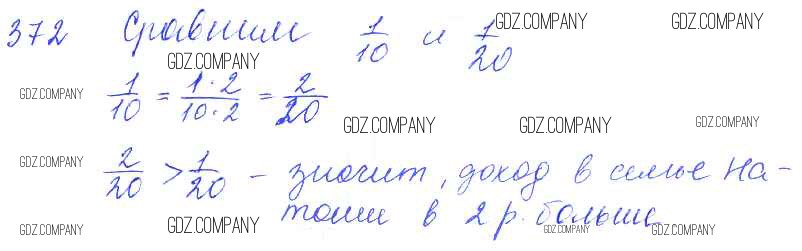 372 Сравним 1/10 и 1/20
GDZ.COMPANY GDZ.COMPANY
GDZ.COMPANY
1/10 = 1·2/10·2 = 2/20
GDZ.COMPANY
GDZ.COMPANY GDZ.COMPANY GDZ.COMPANY
2/20 > 1/20 – значит, доход в семье На-
GDZ.COMPANY
таши в 2 р. больше
GDZ.COMPANY GDZ.COMPANY GDZ.COMPANY GDZ.COMPANY